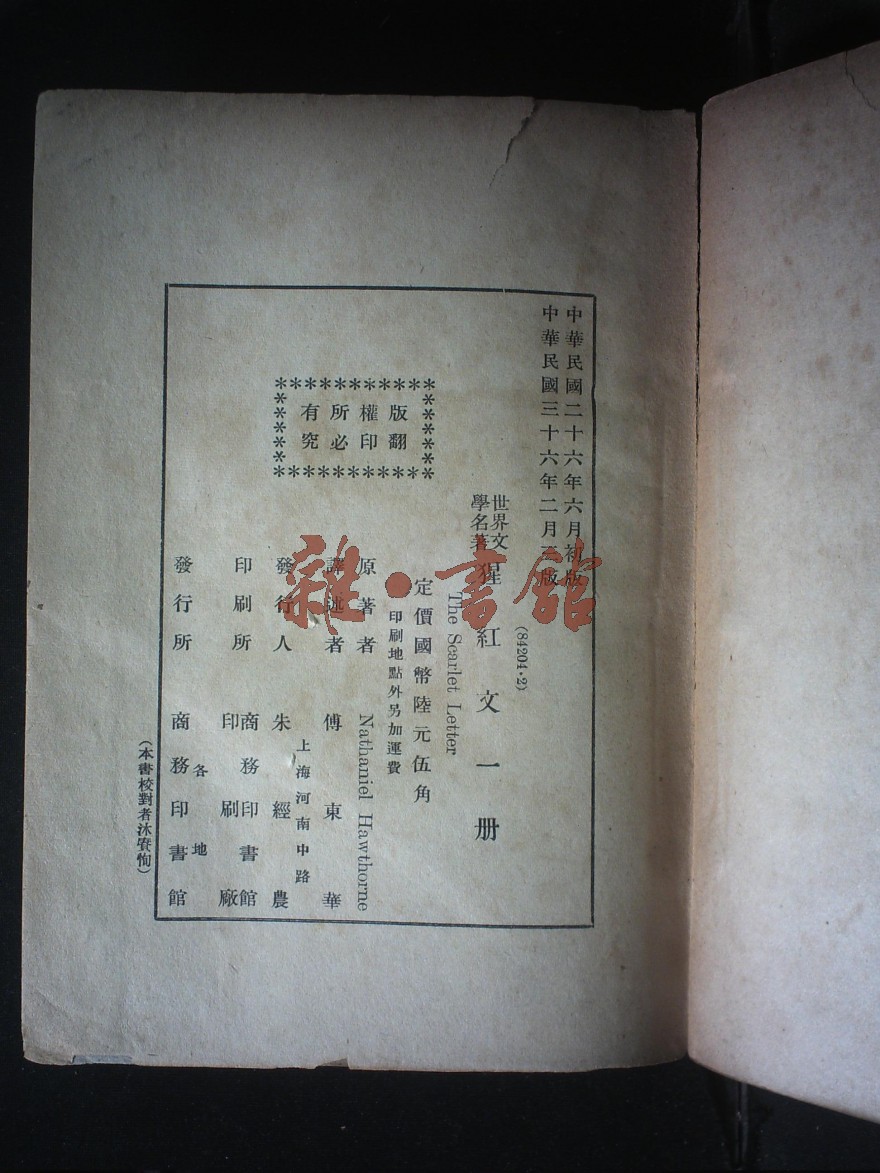 中華民國二十六年六月初版
中華民國三十六年二月　版
(84204·2)
世界文學名著
猩紅文一册
The Scarlet Letter
定價國幣陸元伍角
印刷地點外另加運費
版權所有
翻印必究
原著者 Nathaniel Hawthorne
譯述者 傅東華
上海河南中路
發行人 朱經農
印刷所 商務印書館印刷廠
各地
發行所 商務印書館
(本書校對者沐賡恂)
雜·書館